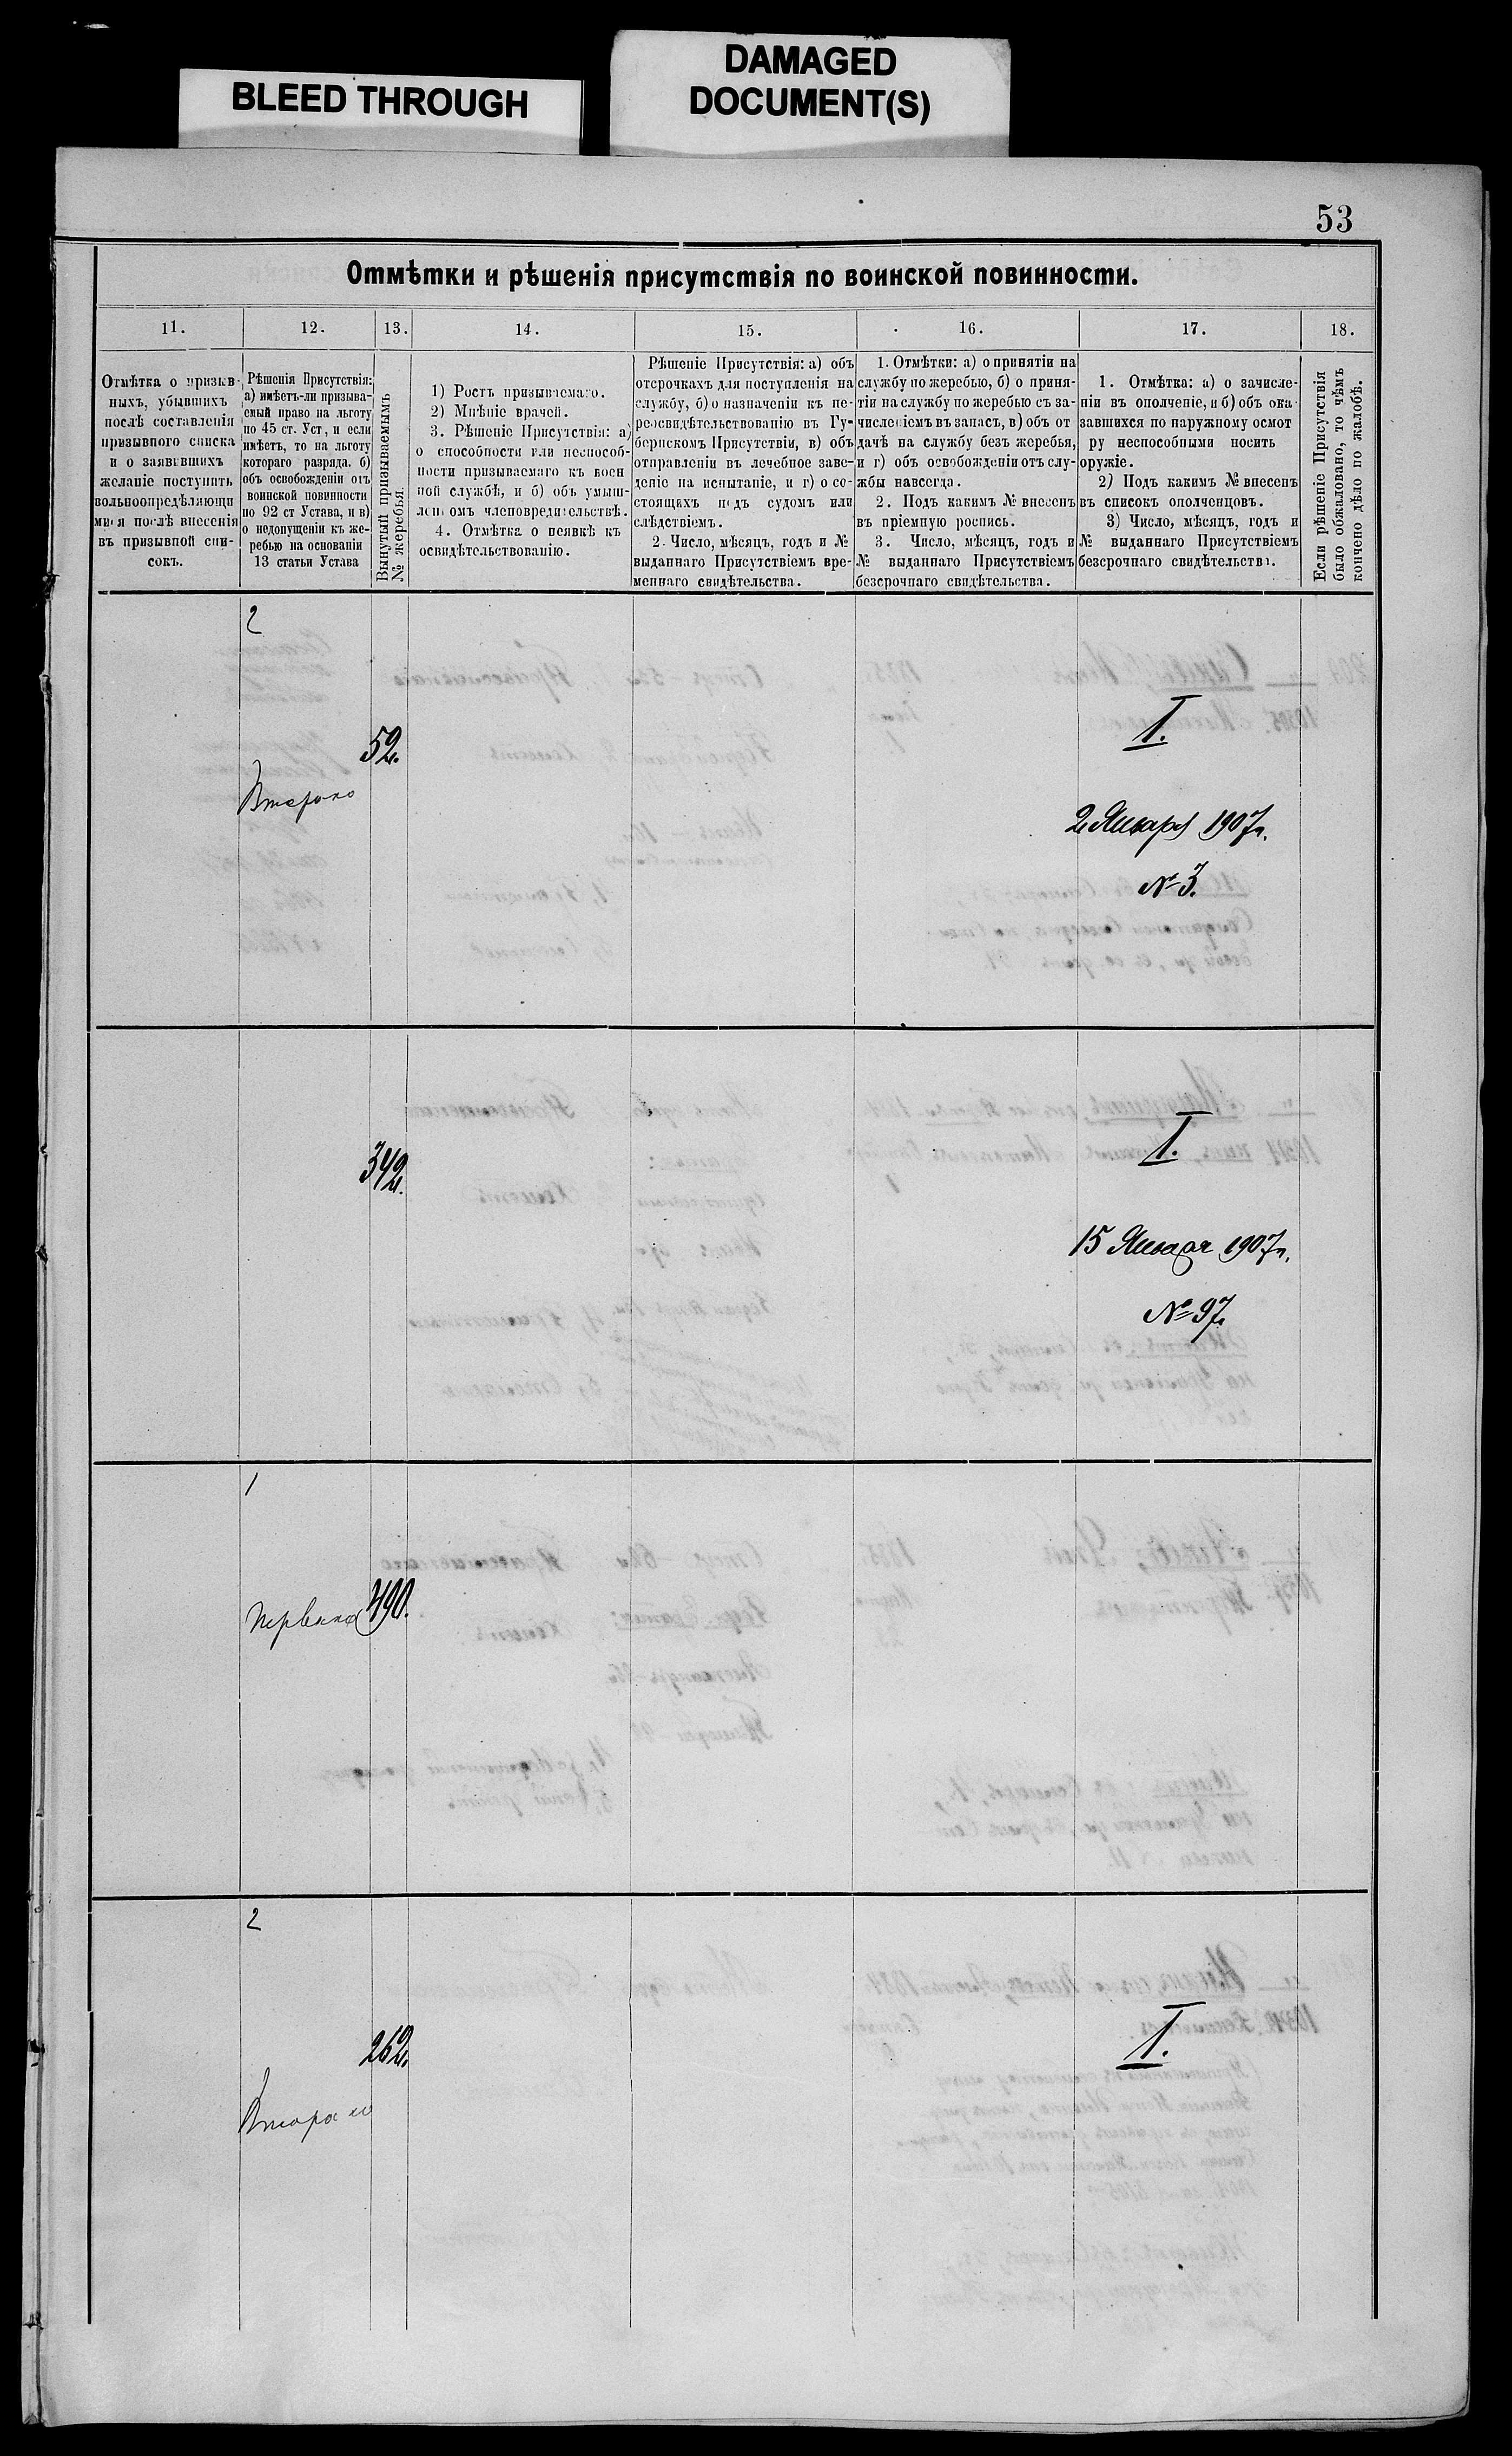 BLEED THROUGH
DAMAGED
DOCUMENT(S)
53
Отмѣтки и рѣшенія присутствія по воинской повинности.
11.
12.
13.
14.
15.
16.
17.
18.
Отмѣтка о призыв-
ныхъ, убывшихъ
послѣ составленія
призывного списка
и о заявившихъ
желаніе поступить
вольноопредѣляющи
мися послѣ внесенія
въ призывной спи-
сокъ.
Рѣшенія Присутствія:
а) имѣетъ-ли призыва-
емый право на льготу
по 45 ст. Уст, и если
имѣетъ, то на льготу
котораго разряда. б)
объ освобожденіи отъ
воинской повинности
по 92 ст Устава, и в)
о недопущеніи къ же-
ребью на основаніи
13 статьи Устава
Вынутый призываемымъ
№ жеребья.
1) Ростъ призываемаго.
2) Мнѣніе врачей.
3. Рѣшеніе Присутствія: а)
о способности или неспособ-
ности призываемаго къ воен
ной службѣ, и б) объ умыш-
ленномъ членовредительствѣ.
4. Отмѣтка о неявкѣ къ
освидѣтельствованію.
Рѣшеніе Присутствія: а) объ
отсрочкахъ для поступленія на
службу, б) о назначеніи къ пе-
реосвидѣтельствованію въ Гу-
бернскомъ Присутствіи, в) объ
отправленіи въ лечебное заве-
деніе на испытаніе, и г) о со-
стоящихъ подъ судомъ или
слѣдствіемъ.
2. Число, мѣсяцъ, годъ и №
выданнаго Присутствіемъ вре-
меннаго свидѣтельства.
1. Отмѣтки: а) о принятіи на
службу по жеребью, б) о приня-
тіи на службу по жеребью съ за-
численіемъ въ запасъ, в) объ от
дачѣ на службу безъ жеребья,
и г) объ освобожденіи отъ слу-
жбы навсегда.
2. Подъ какимъ № внесенъ
въ пріемную роспись.
3. Число, мѣсяцъ, годъ и
№ выданнаго Присутствіемъ
безсрочнаго свидѣтельства.
1. Отмѣтка: а) о зачисле-
ніи въ ополченіе, и б) объ ока-
завшихся по наружному осмот
ру неспособными носить
оружіе.
2) Подъ какимъ № внесенъ
въ списокъ ополченцовъ.
3) Число, мѣсяцъ, годъ и
№ выданнаго Присутствіемъ
безсрочнаго свидѣтельства.
Если рѣшеніе Присутствія
было обжаловано, то чѣмъ
кончено дѣло по жалобѣ.
2
52.
I.
2 Января 1907 г.
№ 3.
342.
I.
15 Января 1907 г.
№ 97.
1
490.
2
262.
I.